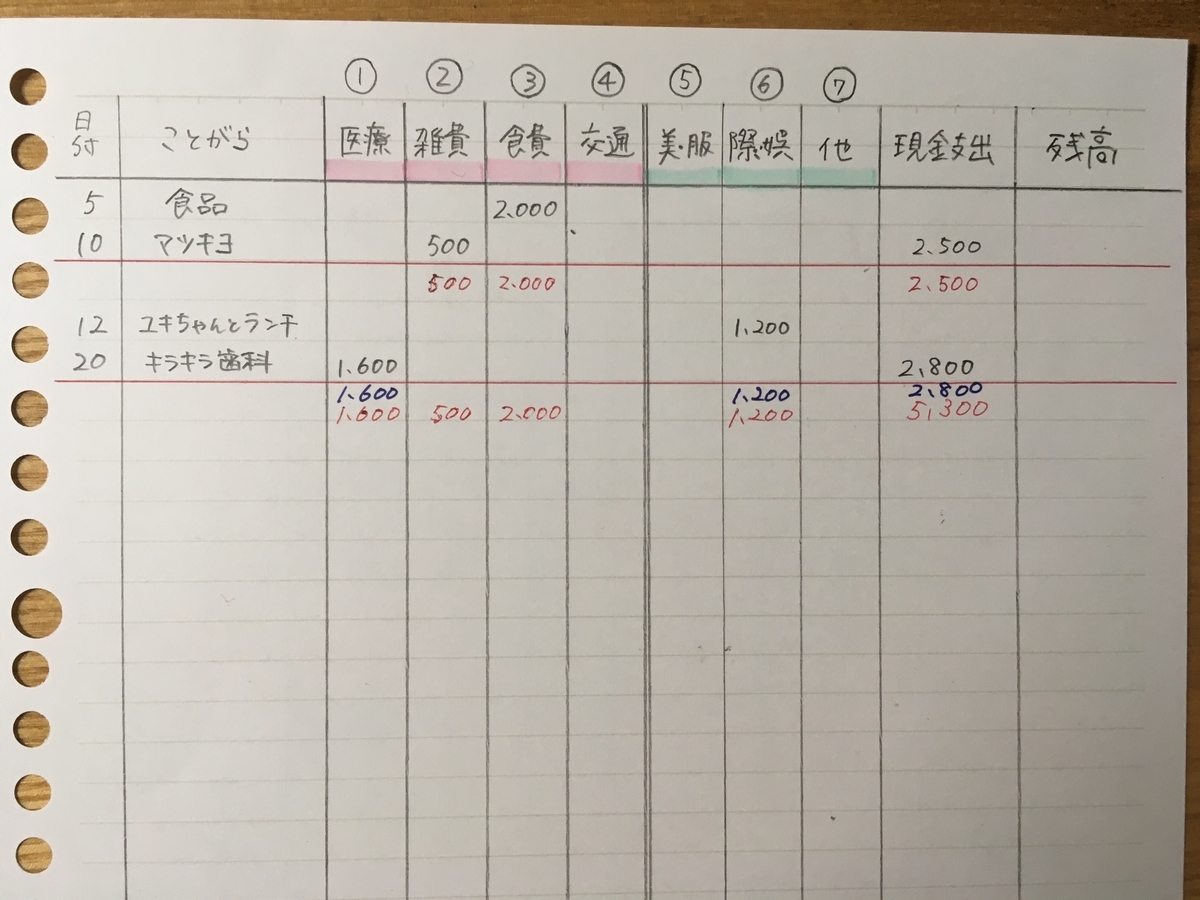 ① ② ③ ④ ⑤ ⑥ ⑦
日付 ことがら 医療 雑費 食費 交通 美・服 際・娯 他 現金支出 残高
5 食品 2.000
10 マツキヨ 500 2.500
500 2.000 2、500
12 ユキちゃんとランチ 1、200
20 キラキラ歯科 1.600 2,800
1、600 1、200 2、800
1、600 500 2.000 1、200 5,300